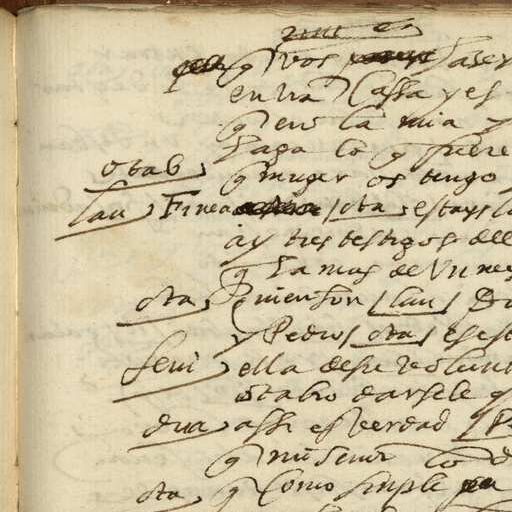 q̃ vos haser
en vr̃a Cassa y es
q̃ en la mia y
haga lo q̃ fuere
otab q̃ muger os tengo
lau Finea /ota/ estays
ay tres testigos del
q̃ ha mas de Un mes
ota quien son /lau/ Du
y Pedro /ota/ es est
feni ella de su Volunt
otabio darsele q
dua assi es Verdad /P
q̃ mi senor lo d
ota q̃ Como simple